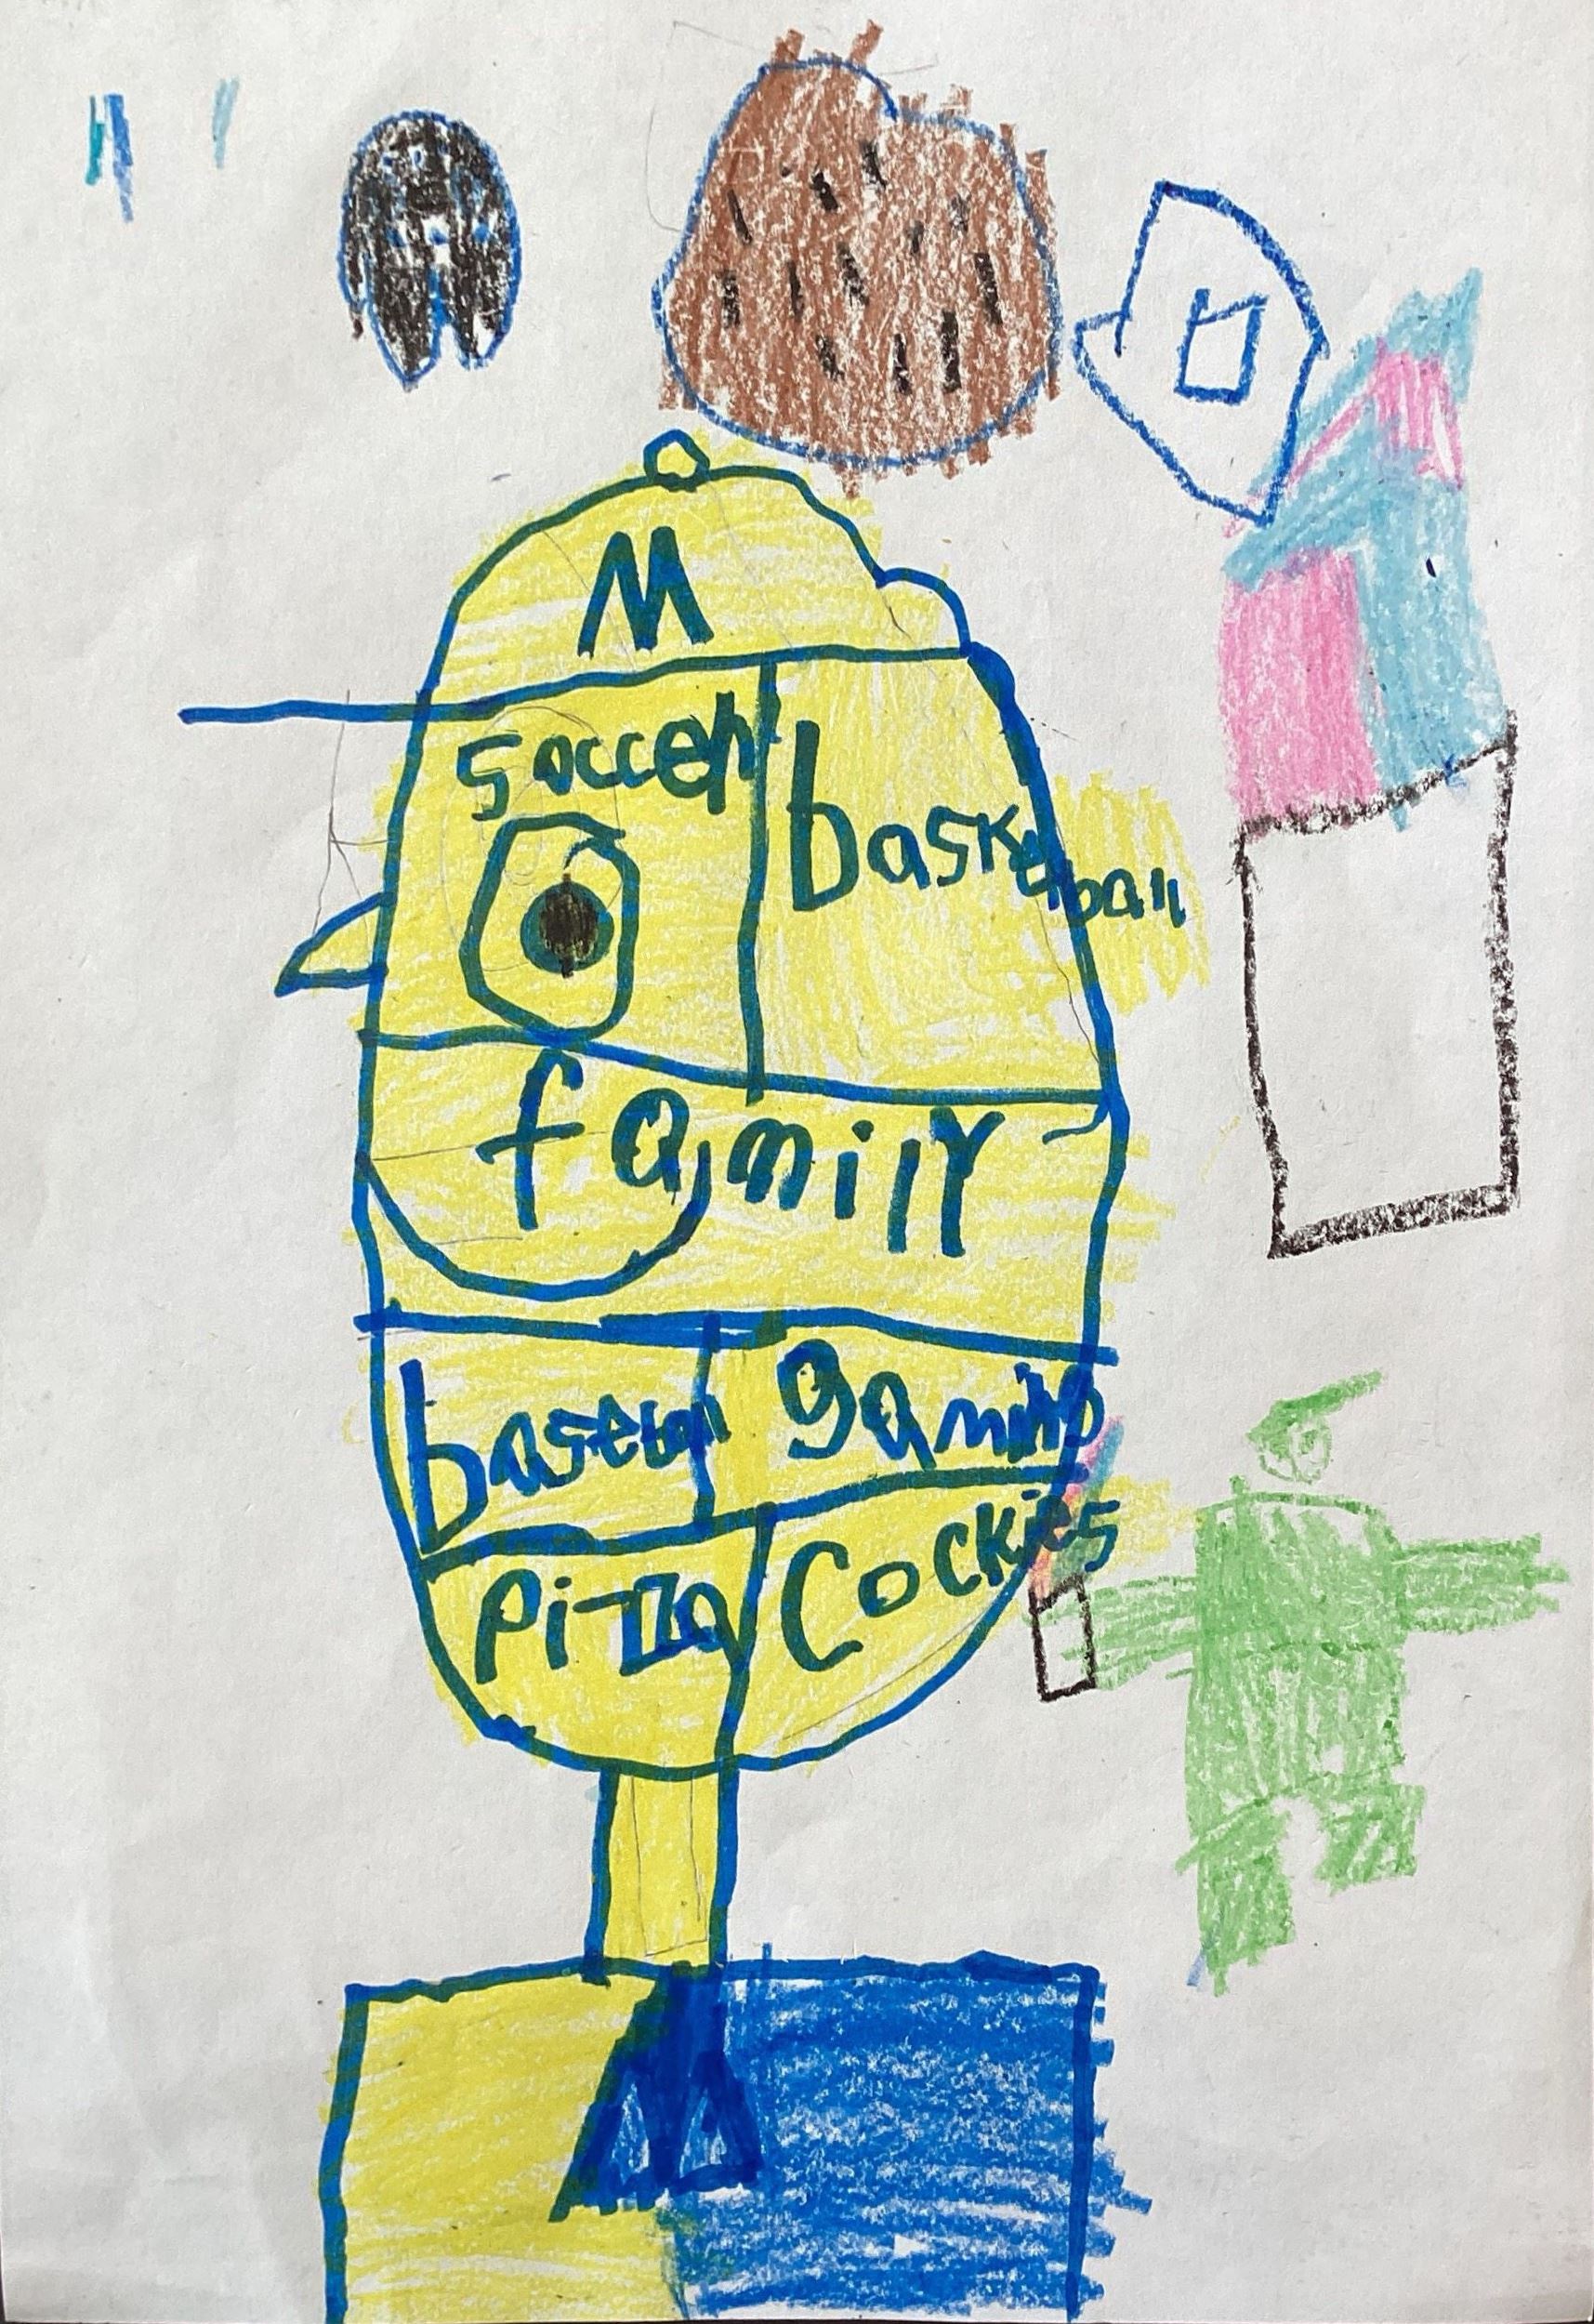 M
soccer
basketball
family
baseball gaming
Pizza Cockies